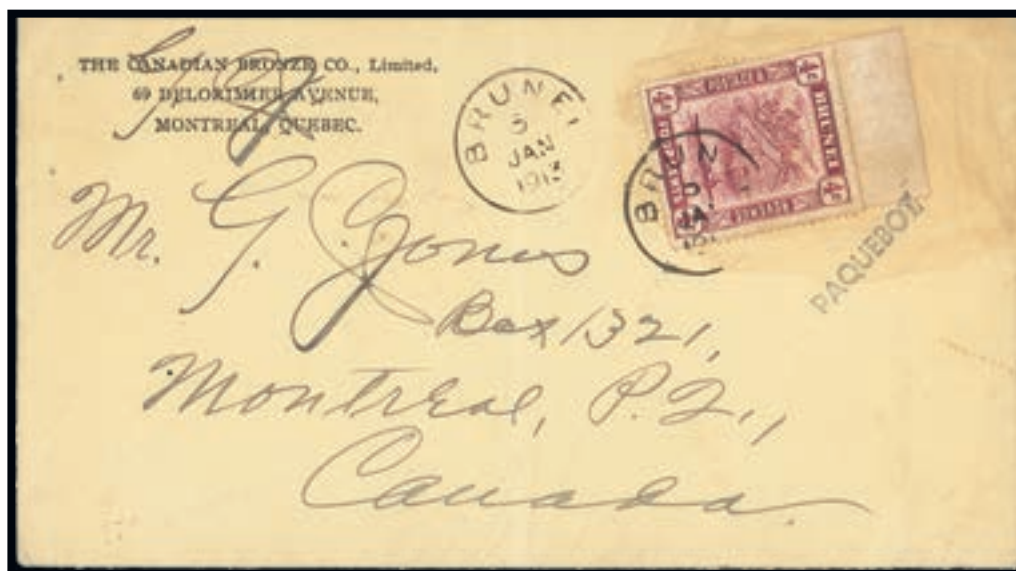 THE CANADIAN BRONZE CO., Limited,
69 DELORIMIER AVENUE,
MONTREAL, QUEBEC.
G. J.
BRUNEI
5
JAN
1913
4c BRUNEI 4c
BRUNEI
4c BRUNEI 4c
BRUN
JA
PAQUEBOT.
Mr. G. J. Jones
Box 1321,
Montreal, P.Q.,
Canada.